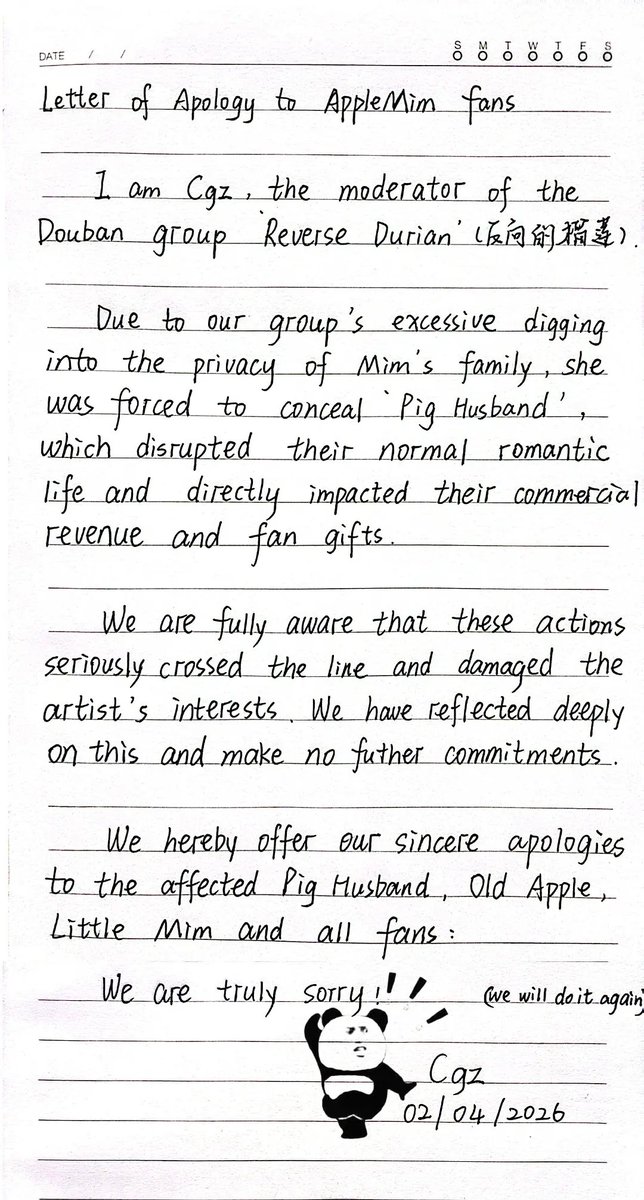 DATE / /
S M T W T F S
Letter of Apology to AppleMim fans
I am Cgz, the moderator of the
Douban group 'Reverse Durian' (反向的榴莲).
Due to our group's excessive digging
into the privacy of Mim's family, she
was forced to conceal 'Pig Husband',
which disrupted their normal romantic
life and directly impacted their commercial
revenue and fan gifts.
We are fully aware that these actions
seriously crossed the line and damaged the
artist's interests. We have reflected deeply
on this and make no futher commitments.
We hereby offer our sincere apologies
to the affected Pig Husband, Old Apple,
Little Mim and all fans:
We are truly sorry! (we will do it again)
Cgz
02/04/2026